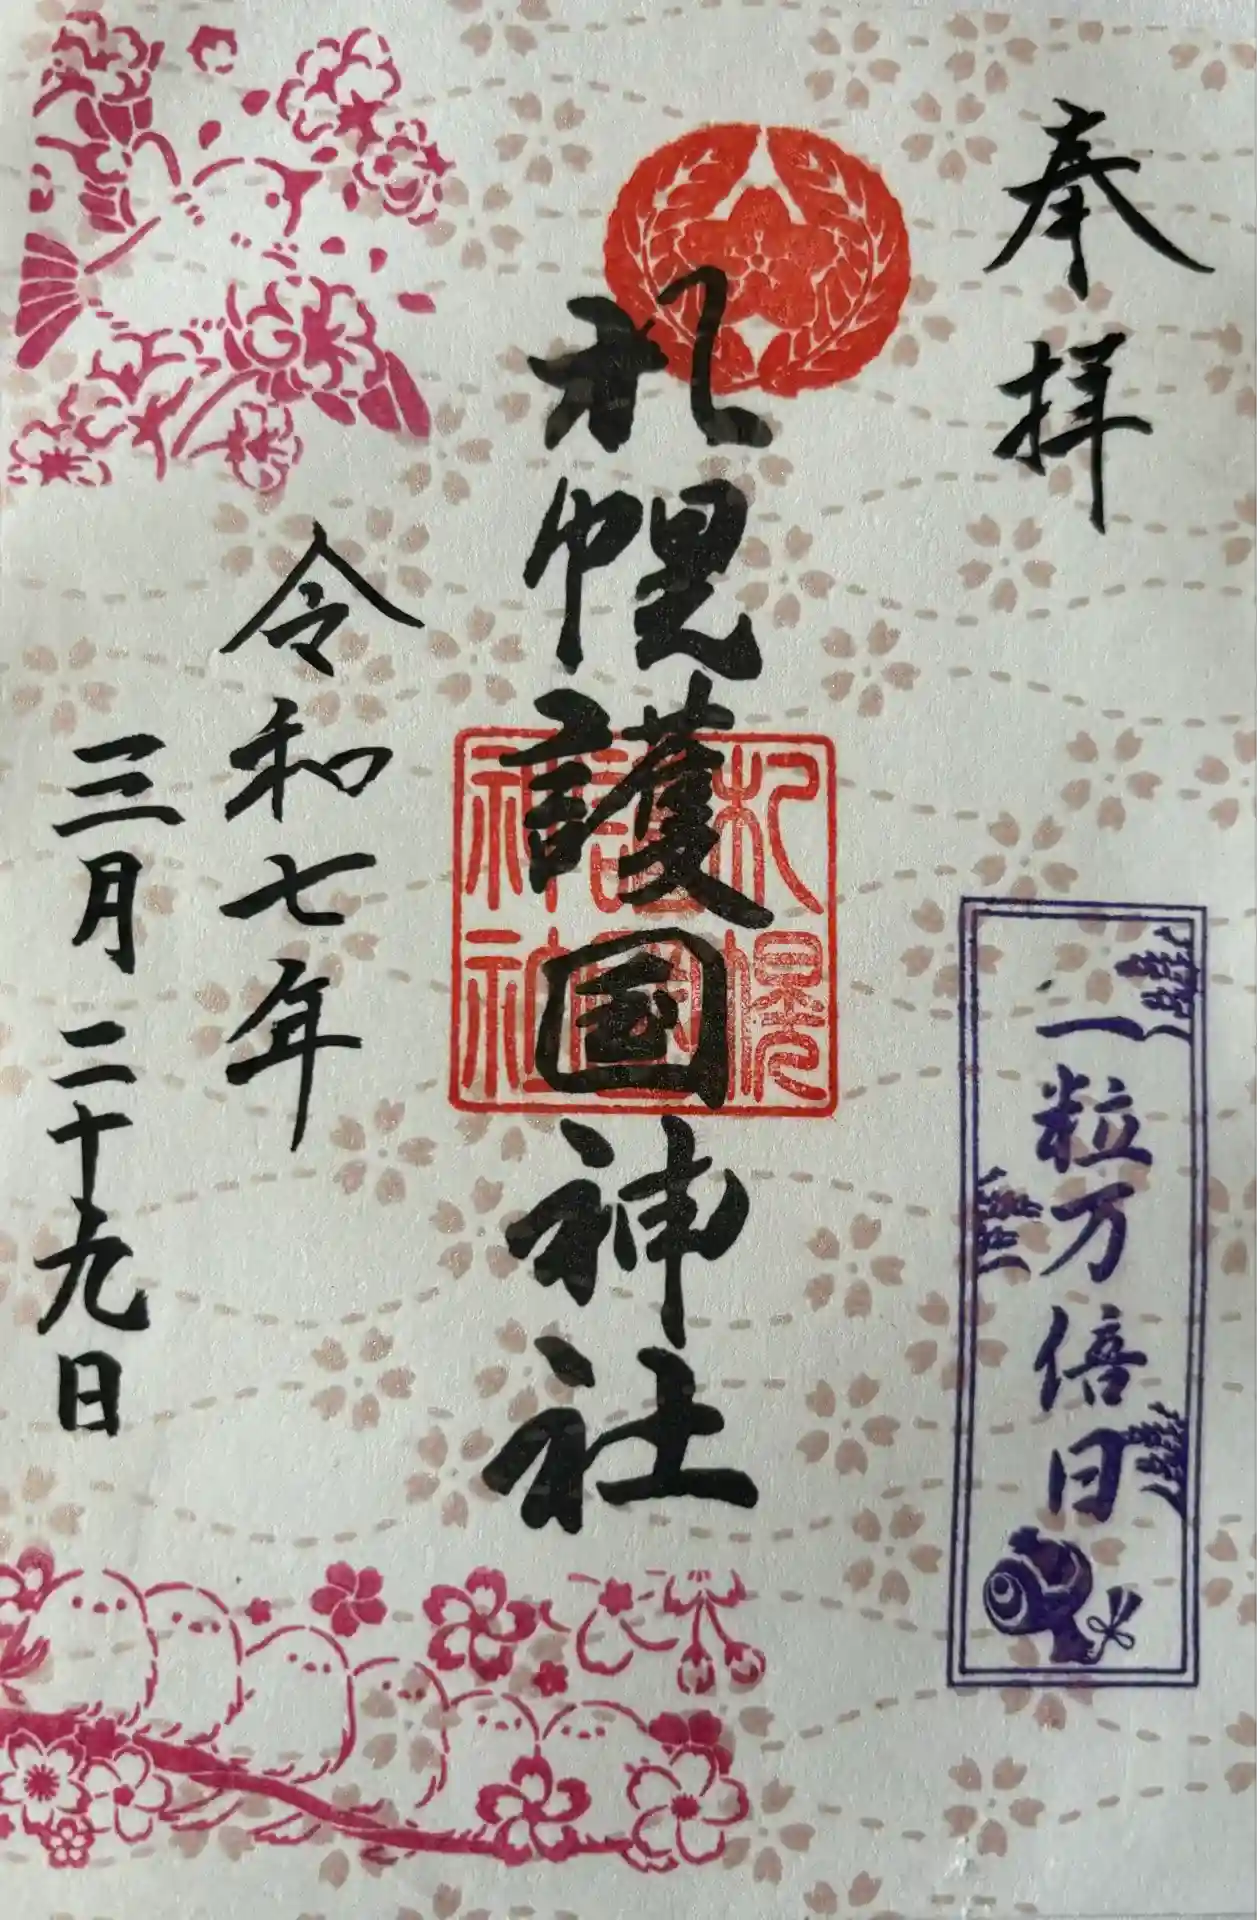 奉拝
一粒万倍日
札幌護国神社
札幌
護国
神社
令和七年
三月二十九日